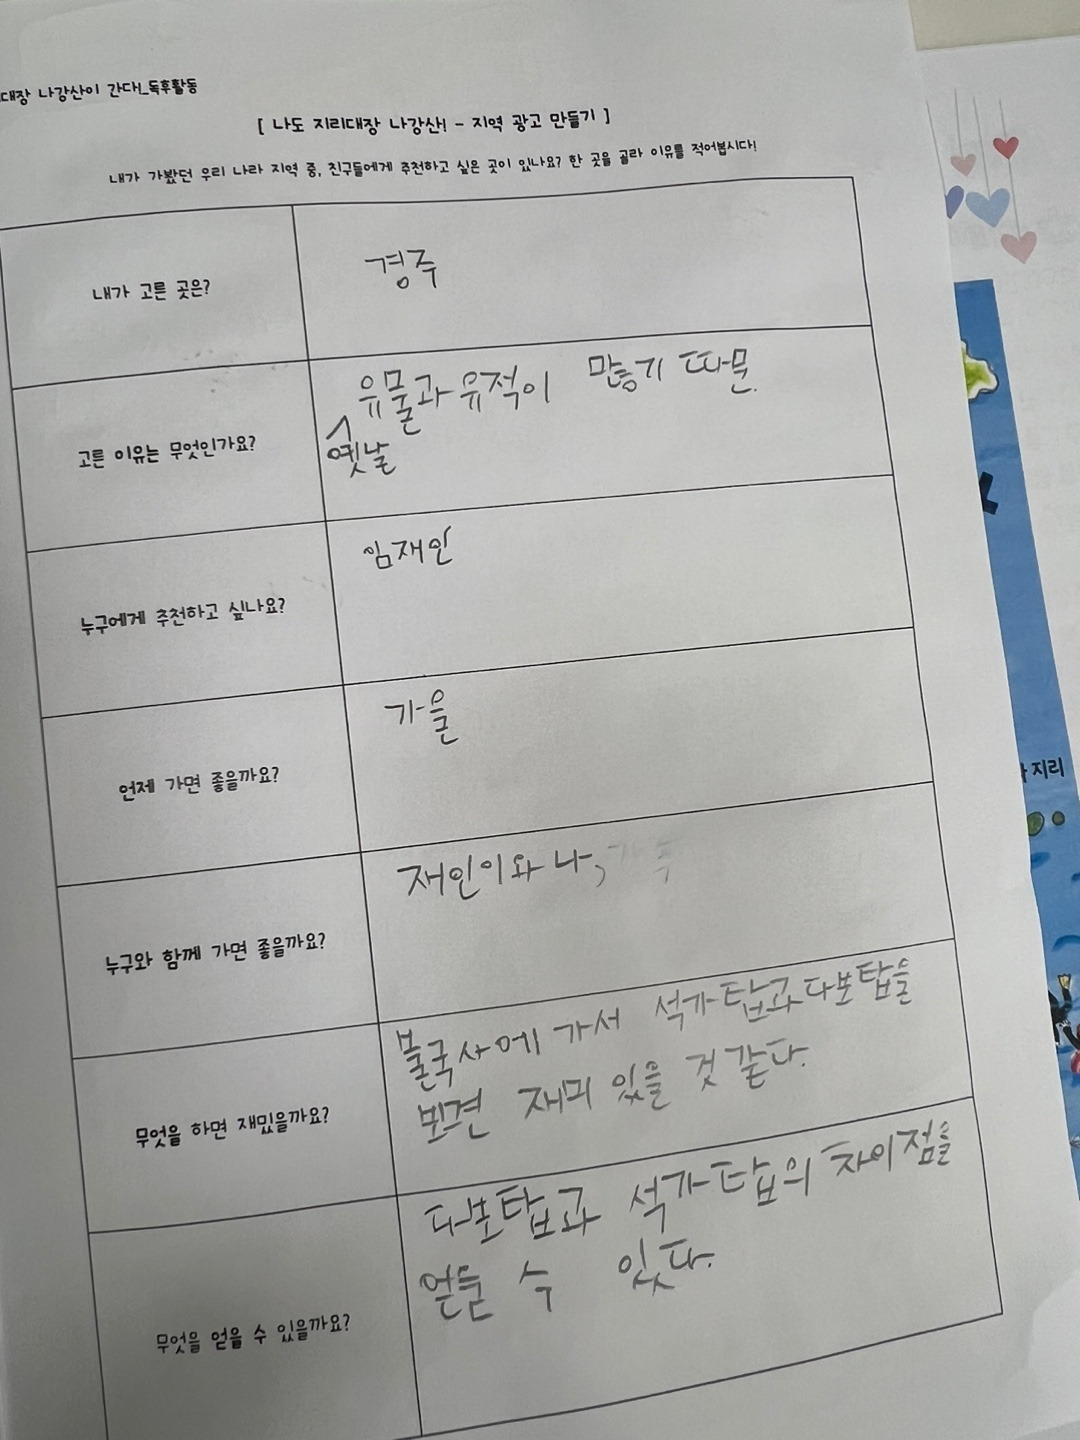 대장 나강산이 간다!_독후활동
[ 나도 지리대장 나강산! - 지역 광고 만들기 ]
내가 가봤던 우리 나라 지역 중, 친구들에게 추천하고 싶은 곳이 있나요? 한 곳을 골라 이유를 적어봅시다!
내가 고른 곳은?
경주
고른 이유는 무엇인가요?
유물과 유적이 많기 때문.
옛날
누구에게 추천하고 싶나요?
임재인
언제 가면 좋을까요?
가을
누구와 함께 가면 좋을까요?
재인이와 나,
무엇을 하면 재밌을까요?
불국사에 가서 석가탑과 다보탑을
보면 재미 있을 것 같다.
무엇을 얻을 수 있을까요?
다보탑과 석가탑의 차이점을
얻을 수 있다.
지리